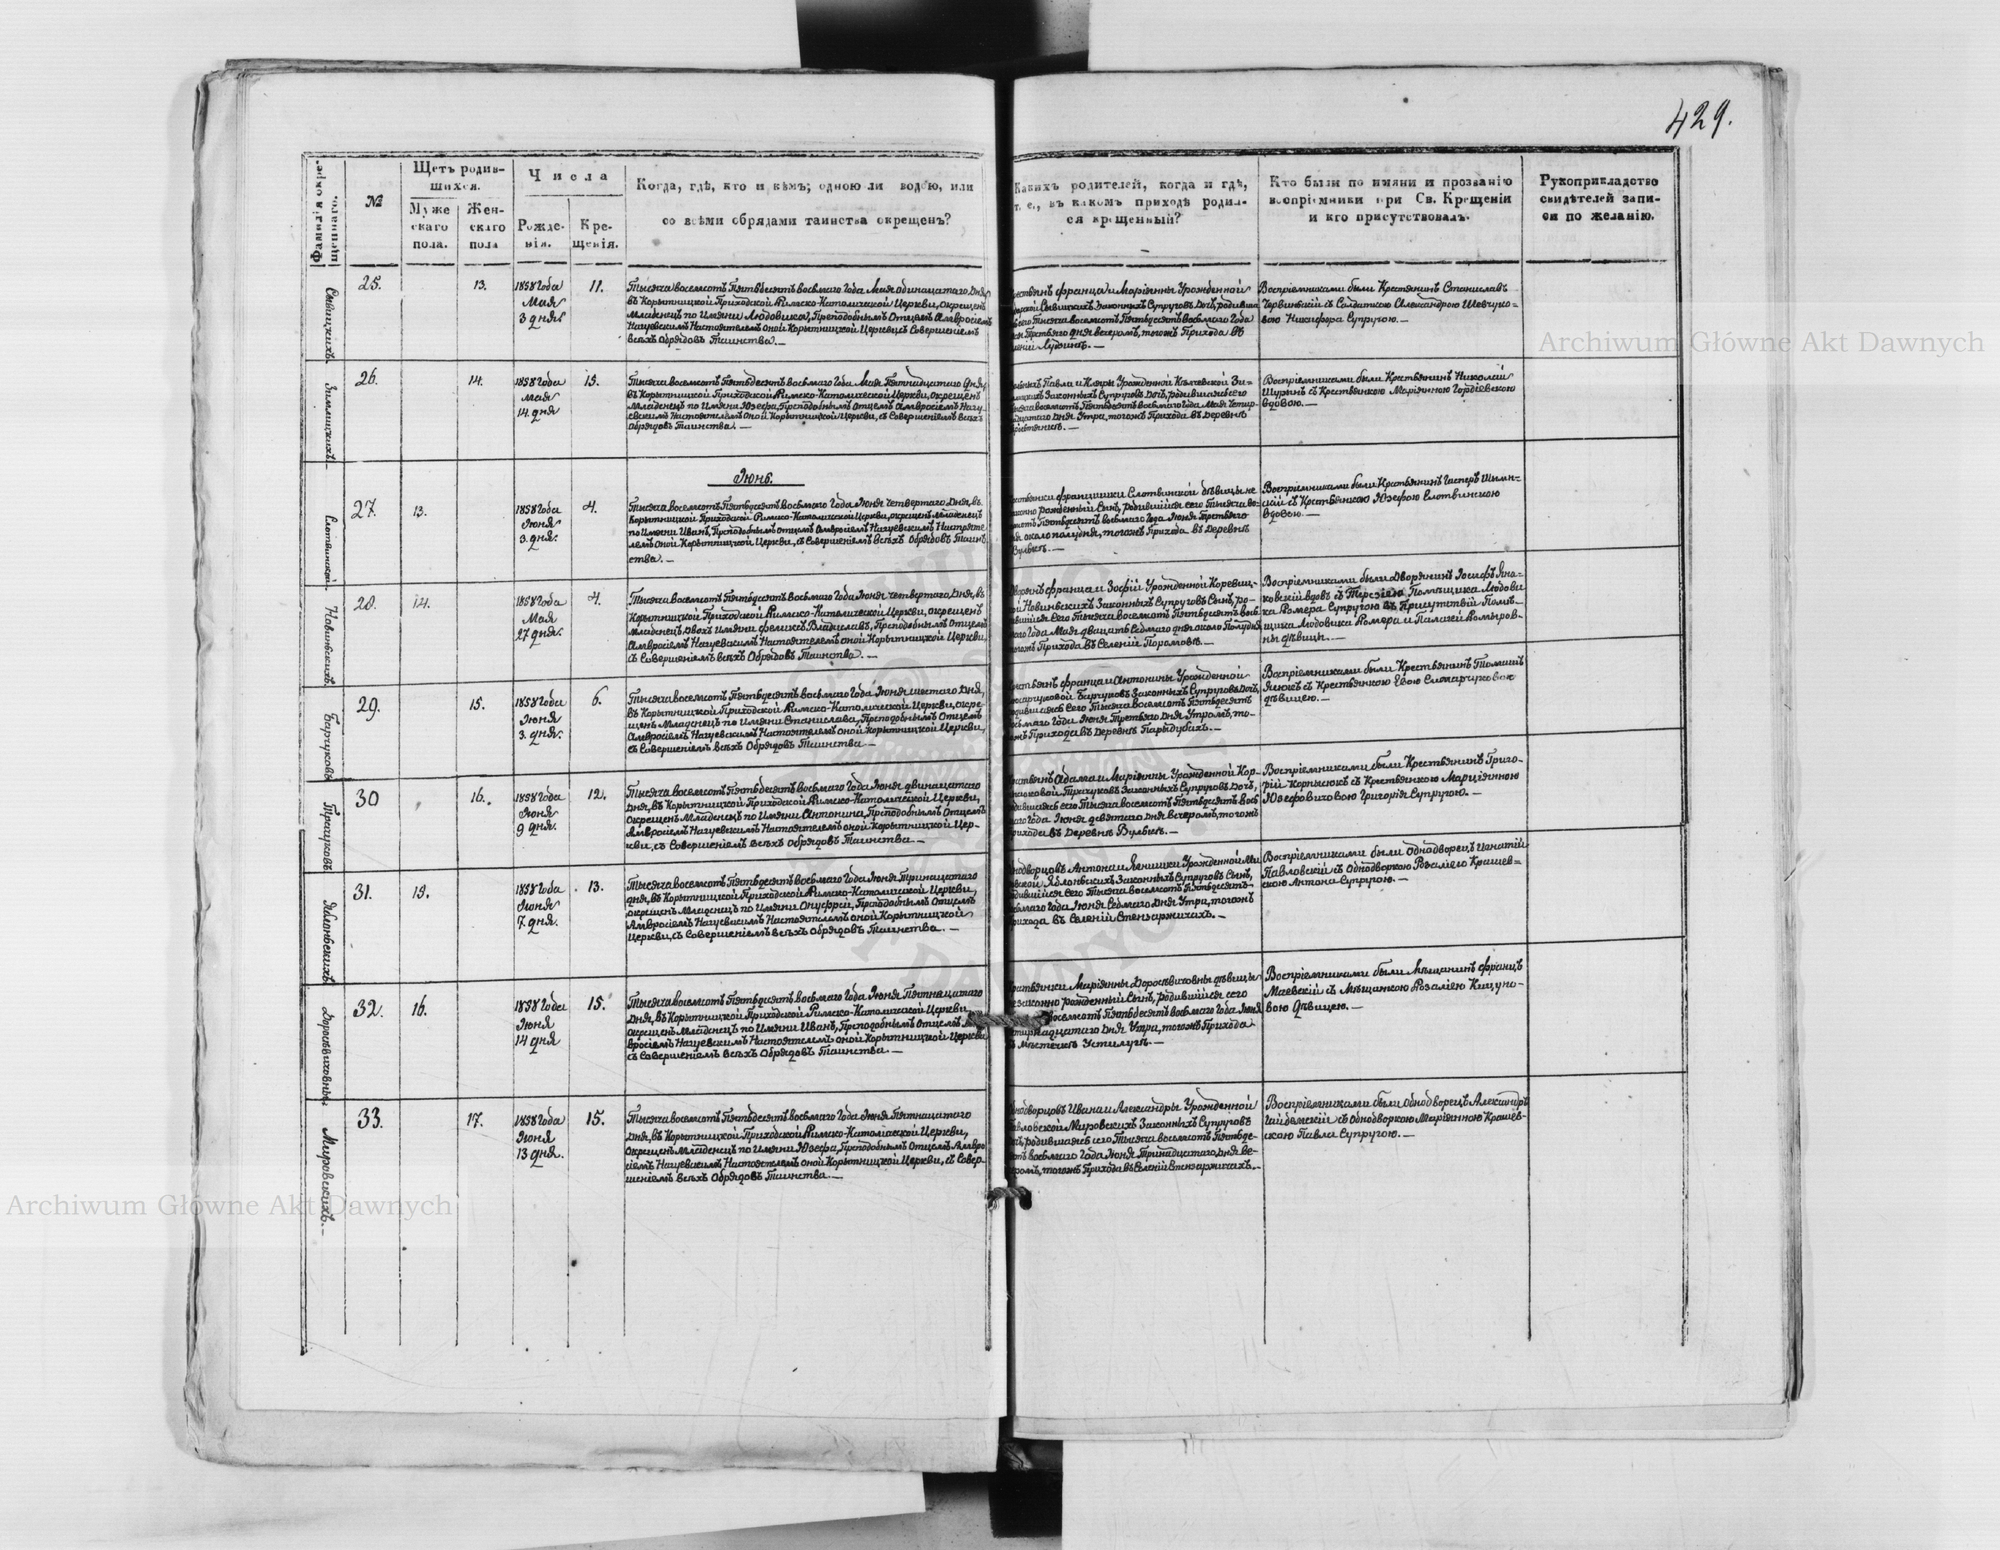 429.
Фамилія окре-
щеннаго.
№
Щетъ родив-
шихся.
Муже
скаго
пола.
Жен-
скаго
пола
Числа
Рожде-
нія.
Кре-
щенія.
Когда, гдѣ, кто и кѣмъ; одною ли водою, или
со всѣми обрядами таинства окрещенъ?
Какихъ родителей, когда и гдѣ,
т. е., въ какомъ приходѣ родил-
ся крещенный?
Кто были по имяни и прозванію
воспріемники при Св. Крещеніи
и кто присутствовалъ.
Рукоприкладство
свидѣтелей запи-
си по желанію.
25.
13.
1858 года
Мая
3 дня
11.
Тысяча восемсотъ Пятьдесятъ восьмаго Года Мая одинацатаго Дня
въ Корытницкой Приходской Римско-Католической Церкви, окрещенъ
Младенецъ по Имени Людовика, Преподобнымъ Отцемъ Амвросіемъ
Нагуевскимъ Настоятелемъ оной Корытницкой Церкви съ Совершеніемъ
всѣхъ Обрядовъ Таинства.—
Франца и Маріянны Урожденной
Законныхъ Супруговъ Дочь, родивша
сего Тысяча восемсотъ Пятьдесятъ восьмаго Года
Третьяго дня вечеромъ, тогожъ Прихода въ
Воспріемниками были Крестьянинъ Станиславъ
Червинскій съ Солдаткою Александрою Шевчуко-
вою Никифора Супругою.—
Зимлицкихъ.
26.
14.
1858 года
Мая
14 дня
15.
Тысяча восемсотъ Пятьдесятъ восьмаго Года Мая Пятнадцатаго Дня,
въ Корытницкой Приходской Римско-Католической Церкви, окрещенъ
Младенецъ по Имени Юзефа, Преподобнымъ Отцемъ Амвросіемъ Нагу-
евскимъ Настоятелемъ оной Корытницкой Церкви, съ Совершеніемъ всѣхъ
Обрядовъ Таинства.—
Павла и Клары Урожденной Кѣлчевской Зи-
Законныхъ Супруговъ Дочь, родившаясь сего
восемсотъ Пятьдесятъ восьмаго Года Мая Четыр-
Дня Утра, тогожъ Прихода въ Деревнѣ
Воспріемниками были Крестьянинъ Николай
Шуринъ съ Крестьянкою Маріянною Гордіевскою
вдовою.—
Слотвинской
Іюнь.
27.
13.
1858 года
Іюня
3. дня.
4.
Тысяча восемсотъ Пятьдесятъ восьмаго Года Іюня четвертаго Дня, въ
Корытницкой Приходской Римско-Католической Церкви, окрещенъ младенецъ
по Имени Иванъ, Преподобнымъ отцемъ Амвросіемъ Нагуевскимъ Настояте
лемъ оной Корытницкой Церкви, съ Совершеніемъ всѣхъ Обрядовъ Таин
ства.—
Францишки Слотвинской дѣвицы не
рожденный Сынъ, родившійся сего Тысяча во-
Пятьдесятъ восьмаго Года Іюня Третьяго
около полудня, тогожъ Прихода въ деревнѣ
Вулькѣ.—
Воспріемниками были Крестьянинъ Гасперъ Шым-
скій съ Крестьянкою Юзефою Слотвинскою
вдовою.—
Новинскихъ.
28.
14.
1858 года
Мая
27 дня.
4.
Тысяча восемсотъ Пятьдесятъ восьмаго Года Іюня четвертаго Дня, въ
Корытницкой Приходской Римско-Католической Церкви, окрещенъ
младенецъ двохъ Имяни Феликсъ Владиславъ, Преподобнымъ Отцемъ
Амвросіемъ Нагуевскимъ Настоятелемъ оной Корытницкой Церкви,
съ Совершеніемъ всѣхъ Обрядовъ Таинства.—
Франца и Зофіи Урожденной Коревиц-
кой Новинскихъ Законныхъ Супруговъ Сынъ, ро-
дившійся Сего Тысяча восемсотъ Пятьдесятъ вось
маго Года Мая двацать Седмаго дня около Полудня
тогожъ Прихода въ Селеніи Поромовѣ.—
Воспріемниками были Дворянинъ Іосифъ Яна-
ковскій вдовъ съ Терезіею Помѣщика Людови
ка Ромера Супругою въ Присутствіи Помѣ-
щика Людовика Ромера и Памлеи Ромыров-
ны дѣвицы.—
Барчуковъ
29.
15.
1858 года
Іюня
3. дня.
6.
Тысяча восемсотъ Пятьдесятъ восьмаго Года Іюня шестаго Дня,
въ Корытницкой Приходской Римско-Католической Церкви, окре-
щенъ Младенецъ по Имени Станислава, Преподобнымъ Отцемъ
Амвросіемъ Нагуевскимъ Настоятелемъ оной Корытницкой Церкви,
съ Совершеніемъ всѣхъ Обрядовъ Таинства.—
Крестьянъ Франца и Антонины Урожденной
Барчуковъ Законныхъ Супруговъ Дочь,
родившаясь Сего Тысяча восемсотъ Пятьдесятъ
восьмаго Года Іюня Третьяго Дня Утромъ, то-
гожъ Прихода въ Деревнѣ Парыдубахъ.—
Воспріемниками были Крестьянинъ Томашъ
Янюкъ съ Крестьянкою Евою Слотарчуковою
дѣвицею.—
Трачуковъ
30
16.
1858 года
Іюня
9 дня.
12.
Тысяча восемсотъ Пятьдесятъ восьмаго Года Іюня двинацатаго
Дня, въ Корытницкой Приходской Римско-Католической Церкви,
Окрещенъ Младенецъ по Имени Антонина, Преподобнымъ Отцемъ
Амвросіемъ Нагуевскимъ Настоятелемъ оной Корытницкой Цер-
кви, съ Совершеніемъ всѣхъ Обрядовъ Таинства.—
Крестьянъ Адама и Маріянны Урожденной Кор-
нюковой Трачуковъ Законныхъ Супруговъ Дочь,
родившаясь сего Тысяча восемсотъ Пятьдесятъ вось
маго Года Іюня девятаго Дня вечеромъ, тогожъ
Прихода въ Деревнѣ Вулькѣ.—
Воспріемниками были Крестьянинъ Григо-
рій Корнѣюкъ съ Крестьянкою Марціянною
Юзефовичовою Григорія Супругою.—
Яблонскихъ
31.
15.
1858 года
Іюня
7. дня.
13.
Тысяча восемсотъ Пятьдесятъ восьмаго Года Іюня Тринацатаго
дня, въ Корытницкой Приходской Римско-Католической Церкви,
окрещенъ Младенецъ по Имени Онуфрій, Преподобнымъ Отцемъ
Амвросіемъ Нагуевскимъ Настоятелемъ оной Корытницкой
Церкви, съ Совершеніемъ всѣхъ Обрядовъ Таинства.—
Однодворцовъ Антона и Яниники Урожденной Ми
Яблонскихъ Законныхъ Супруговъ Сынъ,
родившійся сего Тысяча восемсотъ Пятьдесятъ
восьмаго Года Іюня Седмаго Дня Утра, тогожъ
Прихода въ Селеніи Стензаржихахъ.—
Воспріемниками были Однодворецъ Игнатій
Павловскій съ Однодворкою Розаліею Крашев-
скою Антона Супругою.—
Доросѣвиховны
32.
16.
1858 года
Іюня
14 дня
15.
Тысяча восемсотъ Пятьдесятъ восьмаго Года Іюня Пятнацатаго
Дня, въ Корытницкой Приходской Римско-Католической Церкви,
окрещенъ Младенецъ по Имени Иванъ, Преподобнымъ Отцемъ Ам
вросіемъ Нагуевскимъ Настоятелемъ оной Корытницкой Церкви
съ Совершеніемъ всѣхъ Обрядовъ Таинства.—
Крестьянки Маріянны Доросѣвиховны дѣвицы
незаконно рожденный Сынъ, родившійся сего
восемсотъ Пятьдесятъ восьмаго Года Іюня
Четырнадцатаго Дня Утра, тогожъ Прихода
въ Мѣстечкѣ Устилугѣ.—
Воспріемниками были Мѣщанинъ Францъ
Маевскій съ Мѣщанкою Розаліею Кицуно-
вою дѣвицею.—
Мировскихъ.—
33.
17.
1858 года
Іюня
13 дня.
15.
Тысяча восемсотъ Пятьдесятъ восьмаго Года Іюня Пятнацатаго
Дня, въ Корытницкой Приходской Римско-Католической Церкви,
Окрещенъ Младенецъ по Имени Юзефа, Преподобнымъ Отцемъ Амвро
сіемъ Нагуевскимъ Настоятелемъ оной Корытницкой Церкви, съ Совер-
шеніемъ всѣхъ Обрядовъ Таинства.—
Однодворцовъ Ивана и Александры Урожденной
Павловской Мировскихъ Законныхъ Супруговъ
Дочь, родившаясь сего Тысяча восемсотъ Пятьде-
сятъ восьмаго Года Іюня Тринадцатаго Дня ве-
черомъ, тогожъ Прихода въ Селеніи Стензаржихахъ.—
Воспріемниками были Однодворецъ Александръ
Гайдемскій съ Однодворкою Маріянною Крашев-
скою Павла Супругою.—
Archiwum Główne Akt Dawnych
Archiwum Główne Akt Dawnych